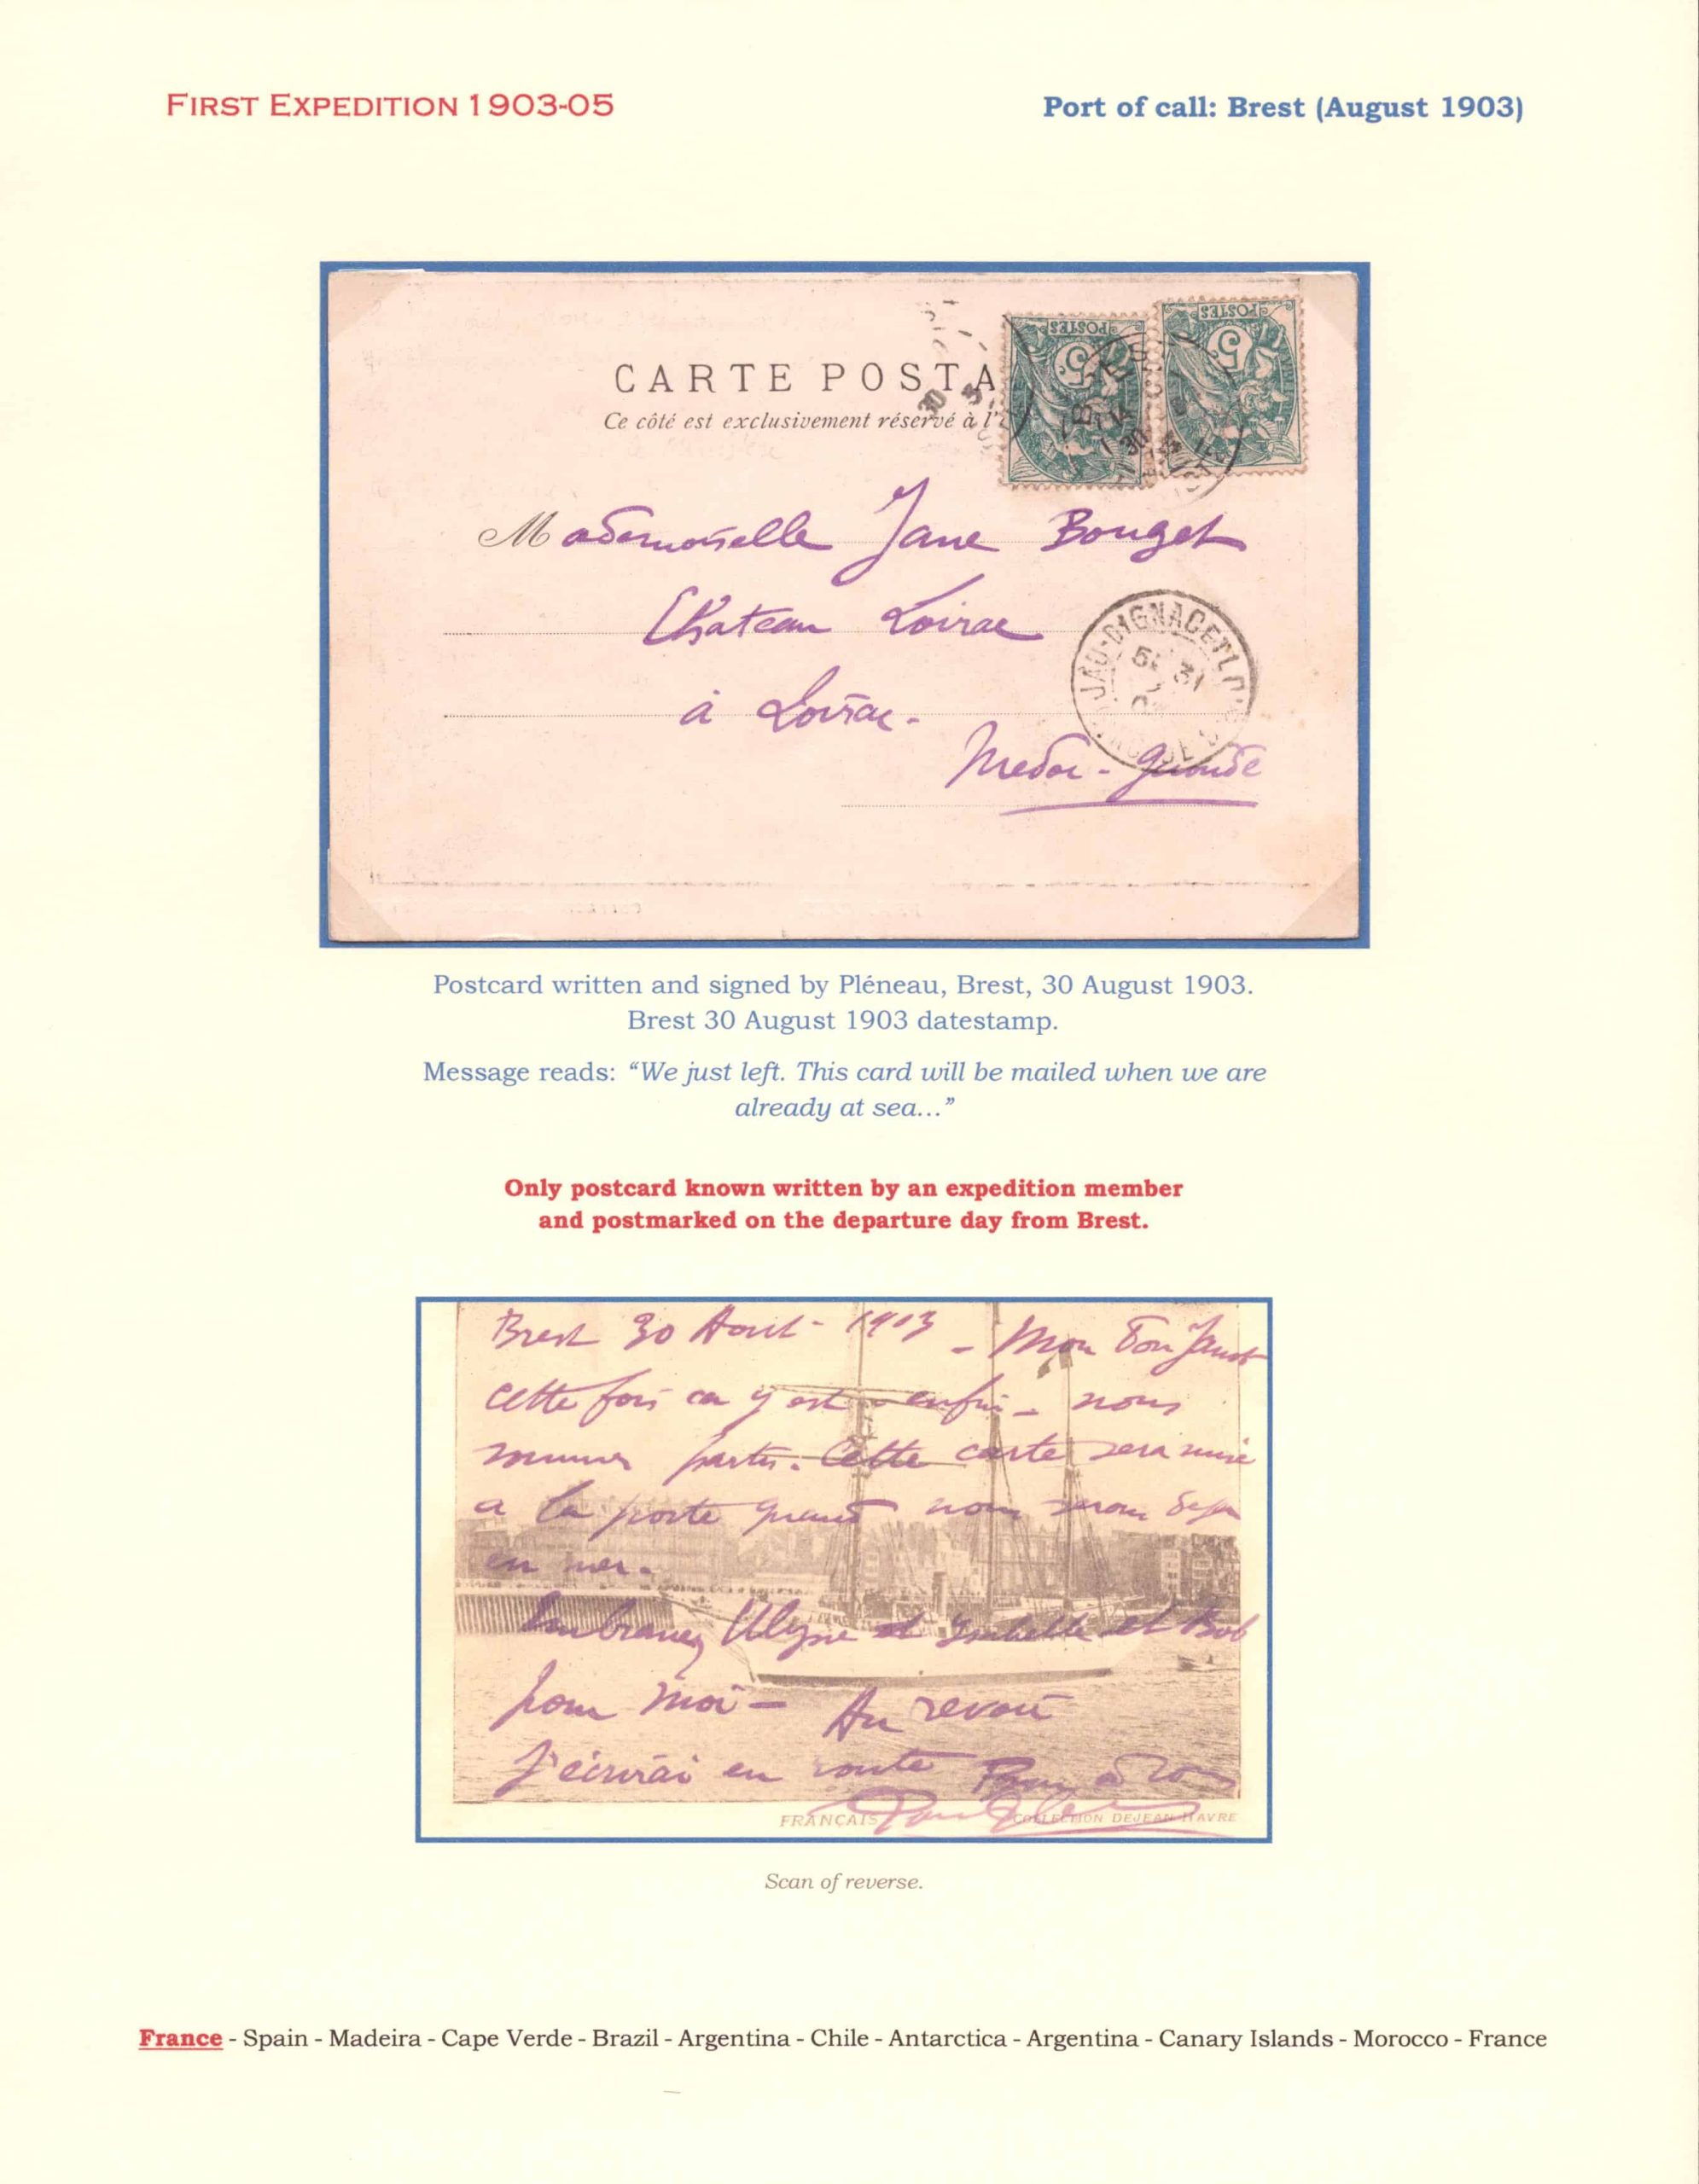 FIRST EXPEDITION 1903-05
Port of call: Brest (August 1903)
CARTE POSTA
Ce côté est exclusivement réservé à l'
POSTES
5
POSTES
5
30
Mademoiselle Jane Bouget
Chateau Loirac
à Loirac.
Medoc - Gironde
JAU-DIGNAC ET L
31
Postcard written and signed by Pléneau, Brest, 30 August 1903.
Brest 30 August 1903 datestamp.
Message reads: “We just left. This card will be mailed when we are
already at sea...”
Only postcard known written by an expedition member
and postmarked on the departure day from Brest.
Brest 30 Aout - 1903 - Mon bon Janot
cette fois ca y est enfin - nous
sommes partis. Cette carte sera mise
a la poste quand nous serons deja
en mer.
Embrassez Ulysse et Isabelle et Bob
pour moi - Au revoir
J'écrirai en route
FRANÇAIS
COLLECTION DEJEAN HAVRE
Scan of reverse.
France - Spain - Madeira - Cape Verde - Brazil - Argentina - Chile - Antarctica - Argentina - Canary Islands - Morocco - France